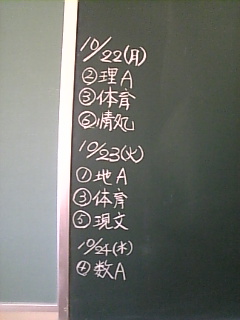 10/22(月)
②理A
③体育
⑥情処
10/23(火)
①地A
③体育
⑤現文
10/24(水)
④数A